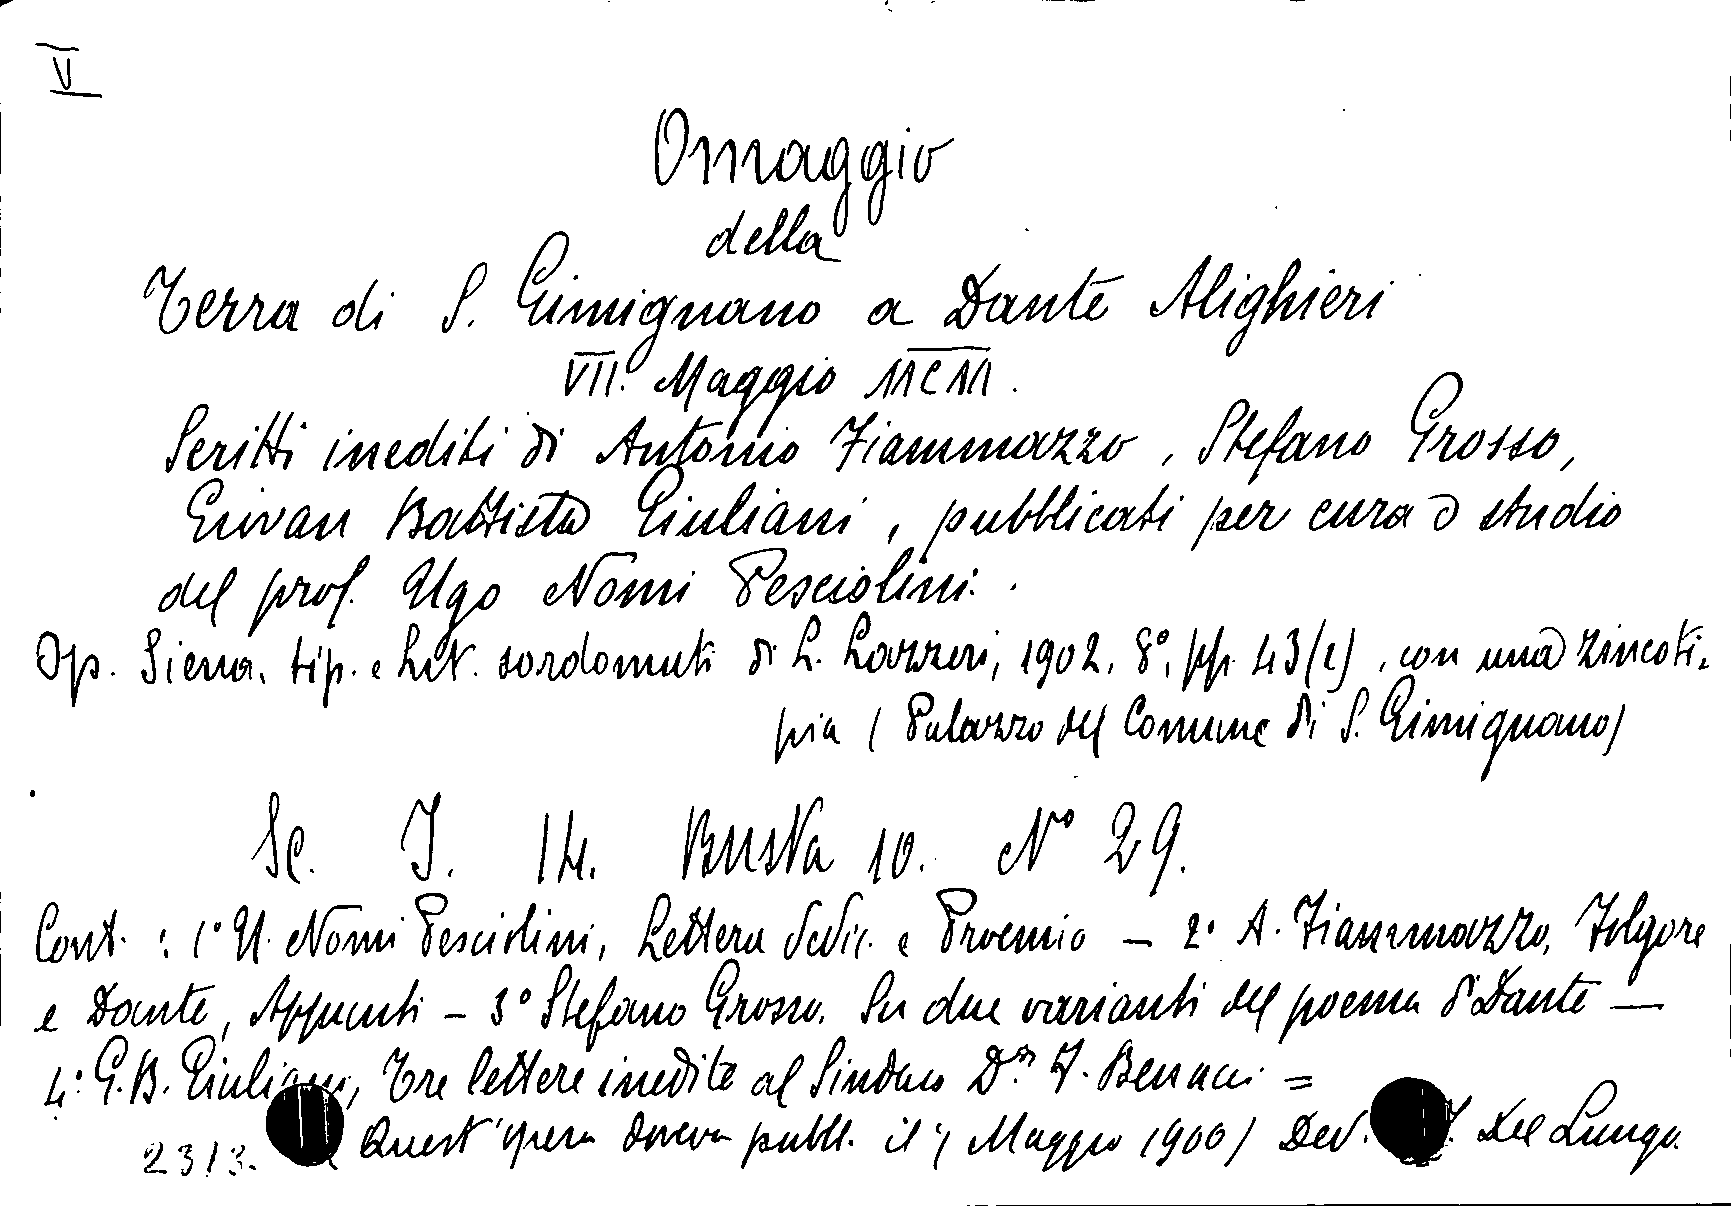 V
Omaggio
della
Terra di S. Gimignano a Dante Alighieri
VII. Maggio MCM.
Scritti inediti di Antonio Fiammazzo, Stefano Grosso,
Giovan Battista Giuliani, pubblicati per cura e studio
del prof. Ugo Nomi Pesciolini.
Op. Siena, tip. e lit. sordomuti di L. Lazzeri, 1902. 8°, pp. 43(1), con una zincoti-
pia (Palazzo del Comune di S. Gimignano)
Sc. I. 14. Busta 10. N° 29.
Cont. : 1° U. Nomi Pesciolini, Lettera dedic. e Proemio — 2° A. Fiammazzo, Folgore
e Dante, Appunti — 3° Stefano Grosso. Su due varianti del poema di Dante —
4° G. B. Giuliani, Tre lettere inedite al Sindaco D.r F. Benucci =
2313. Quest'opera doveva pubbl. il 7 Maggio 1900) Ded. I. Del Lungo.